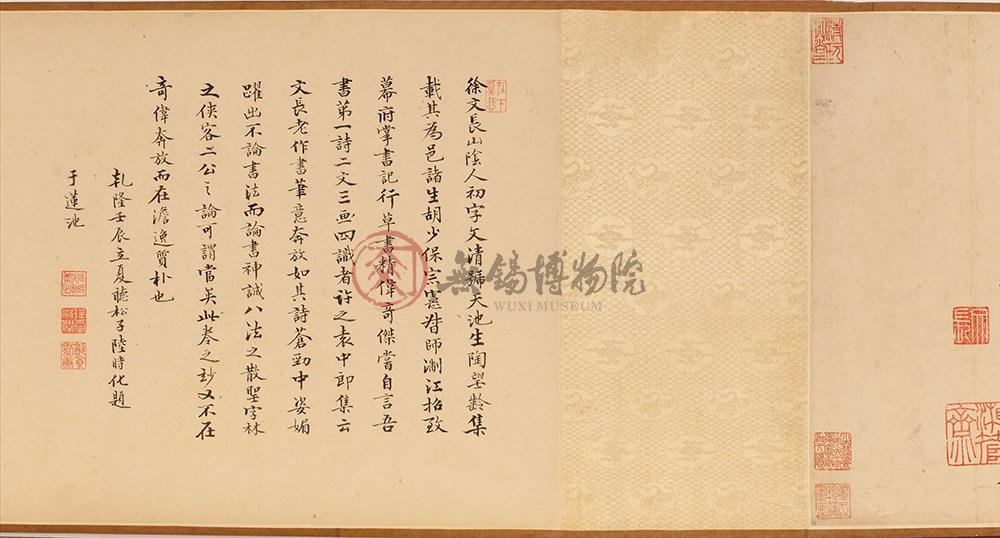 徐文長山陰人初字文清號天池生陶望齡集
載其為邑諸生胡少保宗憲督師浙江招致
幕府掌書記行草書精偉奇傑當自言吾
書第一詩二文三画四識者許之袁中郎集云
文長老作書筆意奔放如其詩蒼勁中姿媚
躍出不論書法而論書神誠八法之散聖字林
之俠客二公之論可謂當矣此卷之玅又不在
奇偉奔放而在澹逸質朴也
乾隆壬辰立夏聽松子陸時化題
于蓮池
無錫博物院
WUXI MUSEUM